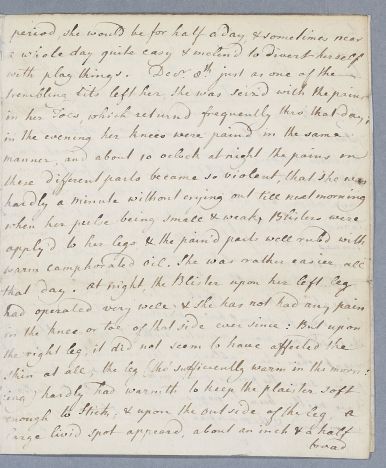 period she would be for half a day & sometimes near
a whole day quite easy & inclin'd to divert herself
with play things. Decr. 8th just as one of the
trembling fits left her, she was seized with the pains
in her Toes, which return'd frequently thro' that day;
in the evening her knees were pain'd in the same
manner, and about 10 oclock at night the pains in
these different parts became so violent, that she was
hardly a minute without crying out till next morning
when her pulse being small & weak, Blisters were
apply'd to her legs & the pain'd parts well rub'd with
warm camphorated oil. She was rather easier all
that day. at night, the Blister upon her left leg
had operated very well & she has not had any pain
in the knee or toe of that side ever since: But upon
the right leg, it did not seem to have affected the
skin at all; the leg (tho sufficently warm in the morn:
ing) hardly had warmth to keep the plaister soft
enough to stick, & upon the outside of the leg, a
large livid spot appeared, about an inch & a half
broad